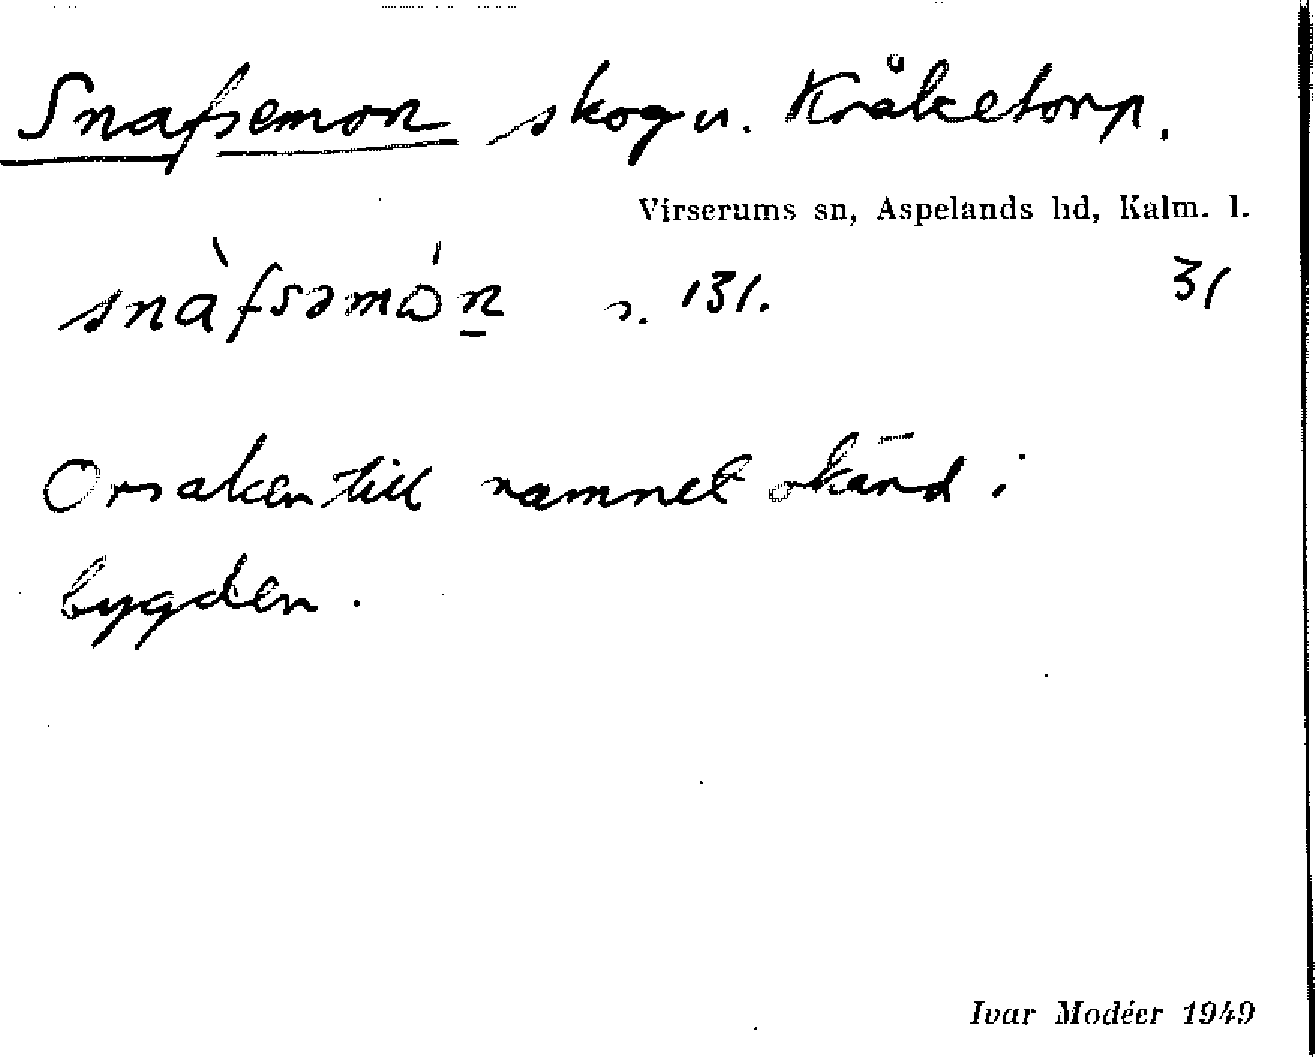 Snafsemon skog u. Kråketorp.
Virserums sn, Aspelands hd, Kalm. l.
snàfsəmón s. 131. 31
Orsaken till namnet okänd i
bygden.
Ivar Modéer 1949